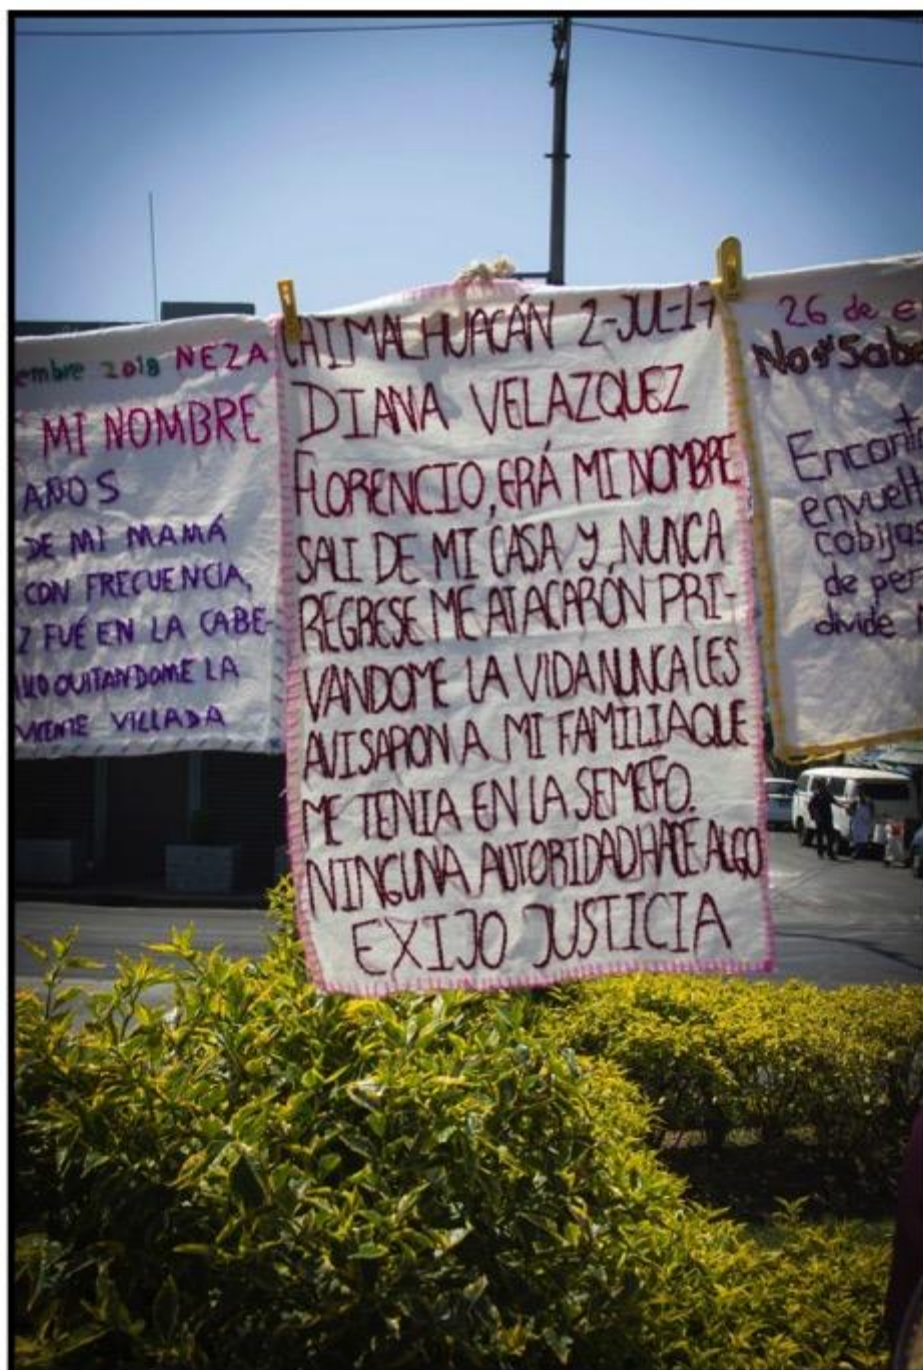 embre 2018 NEZA
MI NOMBRE
AÑOS
DE MI MAMÁ
CON FRECUENCIA,
Z FUÉ EN LA CABE-
QUITANDOME LA
VICENTE VILLADA
CHIMALHUACÁN 2-JUL-17
DIANA VELAZQUEZ
FLORENCIO, ERÁ MI NOMBRE
SALI DE MI CASA Y, NUNCA
REGRESE ME ATACARÓN PRI-
VANDOME LA VIDA NUNCA LES
AVISARON A MI FAMILIA QUE
ME TENIA EN LA SEMEFO.
NINGUNA AUTORIDAD HACE ALGO
EXIJO JUSTICIA
26 de e
No Sabe
Encont
envuelt
cobijas
de per
divide